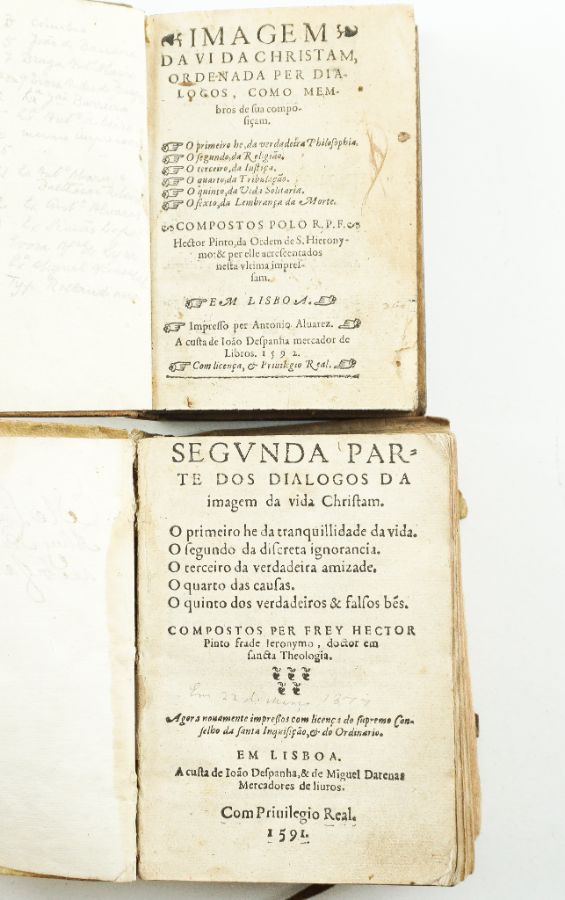 IMAGEM
DA VIDA CHRISTAM,
ORDENADA PER DIA-
LOGOS, COMO MEM-
bros de sua compo-
siçam.
O primeiro he, da verdadeira Philosophia.
O segundo, da Religião.
O terceiro, da Iustiça.
O quarto, da Tribulação.
O quinto, da Vida Solitaria.
O sexto, da Lembrança da Morte.
COMPOSTOS POLO R. P. F.
Hector Pinto, da Ordem de S. Hierony-
mo: & per elle acrescentados
nesta vltima impres-
sam.
EM LISBOA.
Impresso per Antonio Aluarez.
A custa de Ioão Despanha mercador de
Libros. 1592.
Com licença, & Priuilegio Real.
SEGVNDA PAR-
TE DOS DIALOGOS DA
imagem da vida Christam.
O primeiro he da tranquillidade da vida.
O segundo da discreta ignorancia.
O terceiro da verdadeira amizade.
O quarto das causas.
O quinto dos verdadeiros & falsos bẽs.
COMPOSTOS PER FREY HECTOR
Pinto frade Ieronymo, doctor em
sancta Theologia.
Agora nouamente impressos com licença do supremo Con-
selho da santa Inquisição, & do Ordinario.
EM LISBOA.
A custa de Ioão Despanha, & de Miguel Darenas
Mercadores de liuros.
Com Priuilegio Real.
1591.